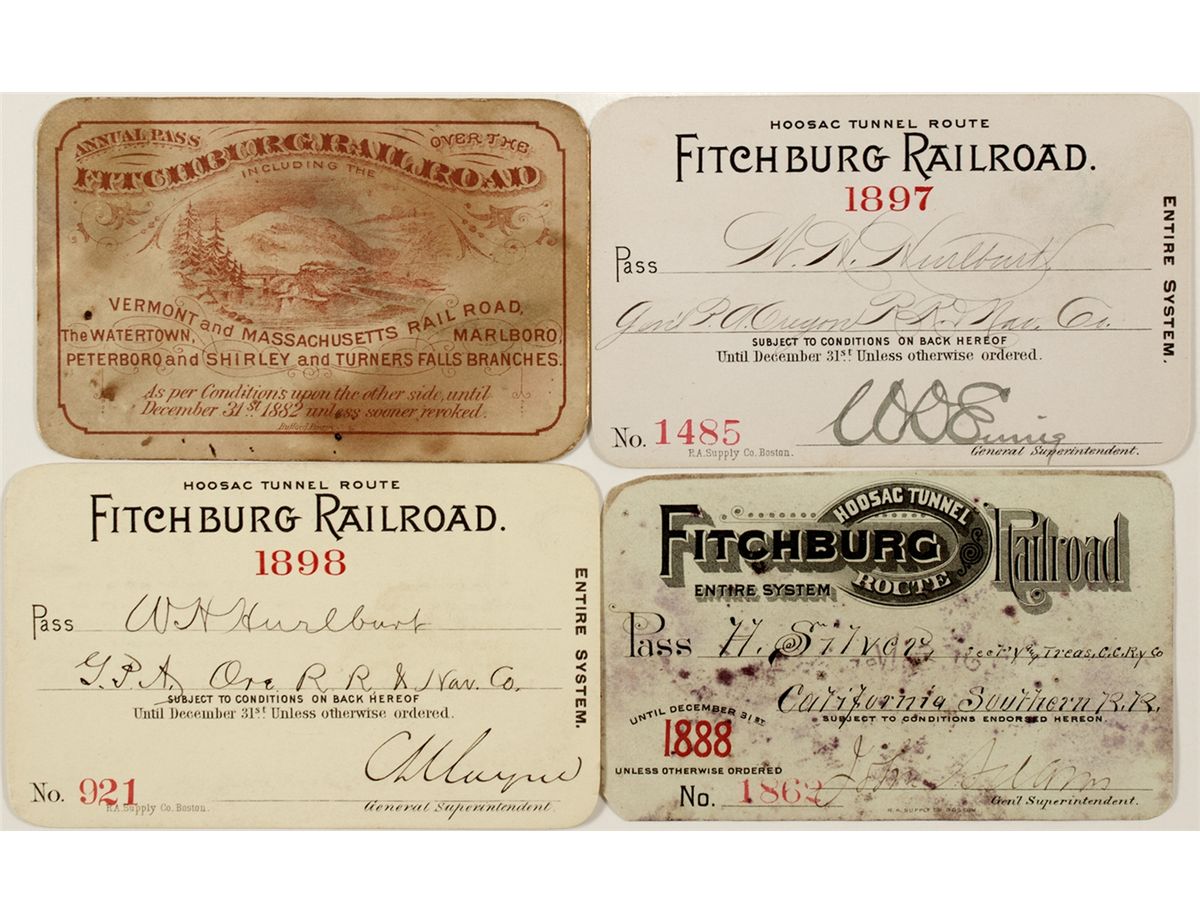 ANNUAL PASS OVER THE
FITCHBURG RAILROAD
INCLUDING THE
VERMONT and MASSACHUSETTS RAIL ROAD,
The WATERTOWN, MARLBORO,
PETERBORO and SHIRLEY and TURNERS FALLS BRANCHES.
As per Conditions upon the other side, until
December 31st 1882 unless sooner revoked.
HOOSAC TUNNEL ROUTE
FITCHBURG RAILROAD.
1897
Pass W. H. Hurlburt
Gen'l P. A. Oregon R.R. & Nav. Co.
SUBJECT TO CONDITIONS ON BACK HEREOF
Until December 31st Unless otherwise ordered.
No. 1485
R.A. Supply Co. Boston.
General Superintendent.
ENTIRE SYSTEM.
HOOSAC TUNNEL ROUTE
FITCHBURG RAILROAD.
1898
Pass W H Hurlburt
G.P.A. Ore R.R. & Nav. Co.
SUBJECT TO CONDITIONS ON BACK HEREOF
Until December 31st Unless otherwise ordered.
No. 921
R.A. Supply Co. Boston.
General Superintendent.
ENTIRE SYSTEM.
HOOSAC TUNNEL
FITCHBURG Railroad
ROUTE
ENTIRE SYSTEM
Pass H. Silver, Sect'y & Treas, C.C. Ry Co
California Southern R.R.
SUBJECT TO CONDITIONS ENDORSED HEREON.
UNTIL DECEMBER 31ST.
1888
UNLESS OTHERWISE ORDERED
No. 1862
John Adams
Gen'l Superintendent.
R.A. SUPPLY CO. BOSTON